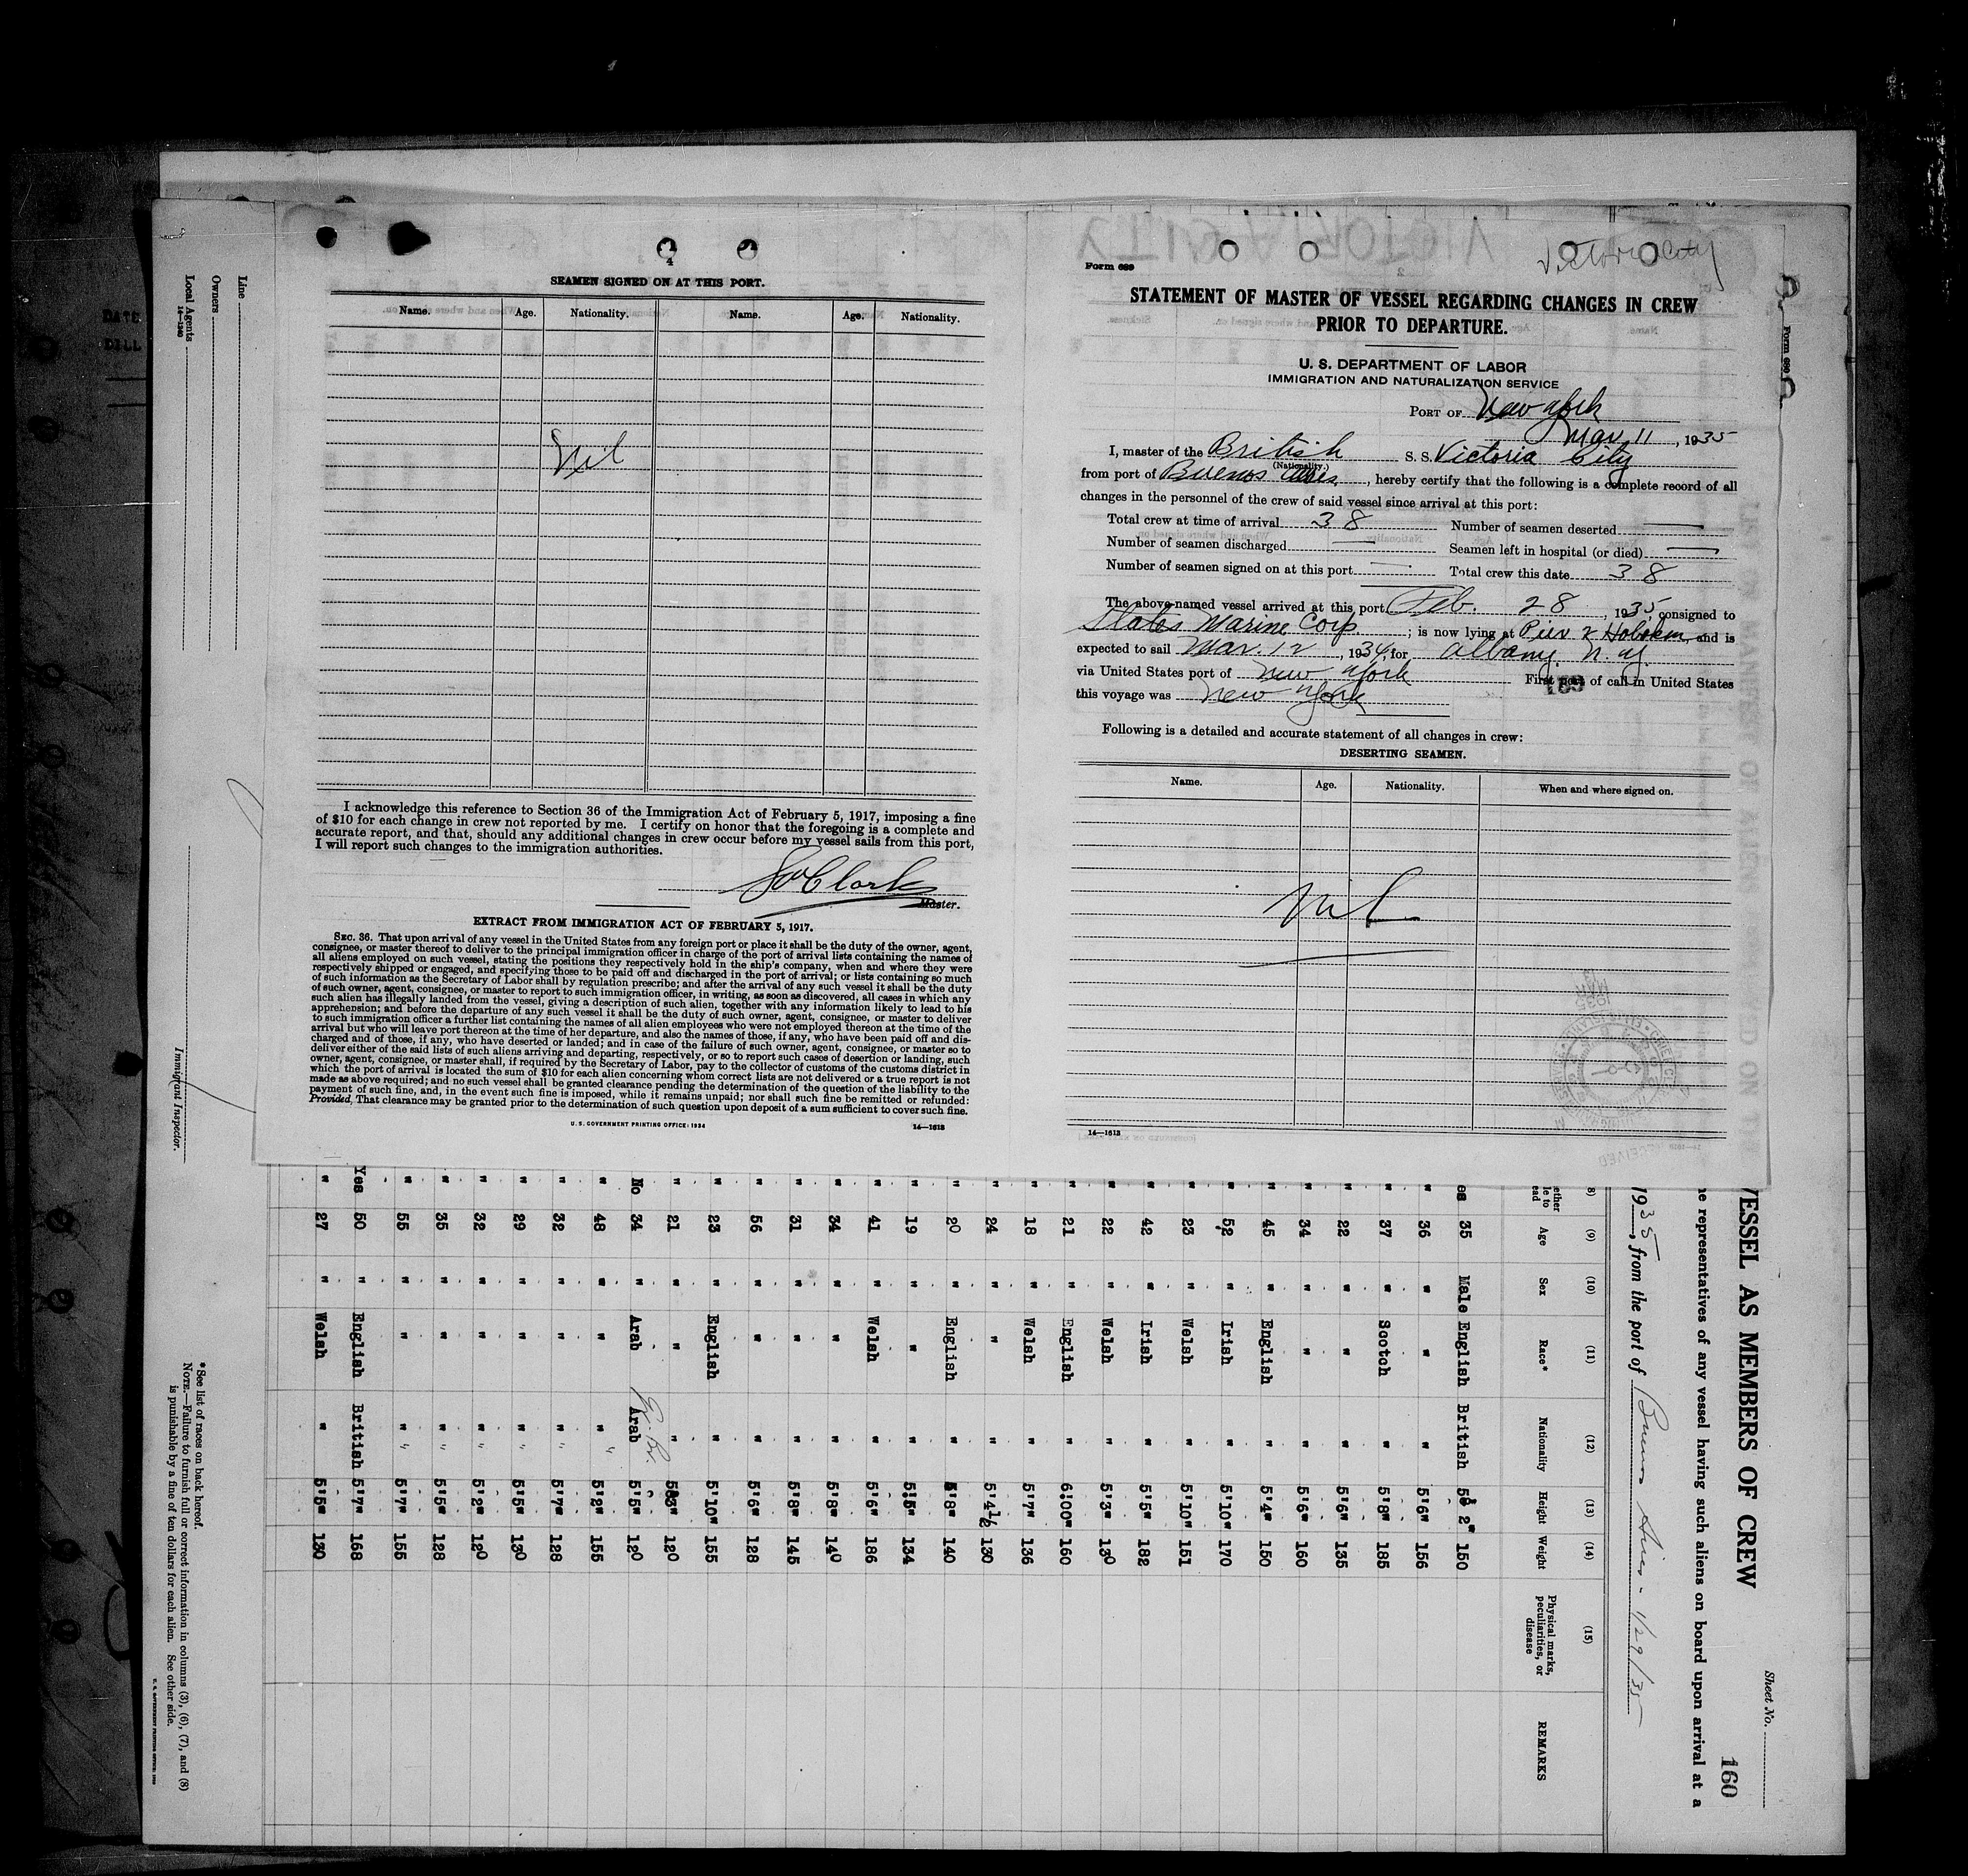 4
SEAMEN SIGNED ON AT THIS PORT.
Name. Age. Nationality. Name. Age. Nationality.
Nil
I acknowledge this reference to Section 36 of the Immigration Act of February 5, 1917, imposing a fine
of $10 for each change in crew not reported by me. I certify on honor that the foregoing is a complete and
accurate report, and that, should any additional changes in crew occur before my vessel sails from this port,
I will report such changes to the immigration authorities.
Clark
Master.
EXTRACT FROM IMMIGRATION ACT OF FEBRUARY 5, 1917.
SEC. 36. That upon arrival of any vessel in the United States from any foreign port or place it shall be the duty of the owner, agent,
consignee, or master thereof to deliver to the principal immigration officer in charge of the port of arrival lists containing the names of
all aliens employed on such vessel, stating the positions they respectively hold in the ship's company, when and where they were
respectively shipped or engaged, and specifying those to be paid off and discharged in the port of arrival; or lists containing so much
of such information as the Secretary of Labor shall by regulation prescribe; and after the arrival of any such vessel it shall be the duty
of such owner, agent, consignee, or master to report to such immigration officer, in writing, as soon as discovered, all cases in which any
such alien has illegally landed from the vessel, giving a description of such alien, together with any information likely to lead to his
apprehension; and before the departure of any such vessel it shall be the duty of such owner, agent, consignee, or master to deliver
to such immigration officer a further list containing the names of all alien employees who were not employed thereon at the time of the
arrival but who will leave port thereon at the time of her departure, and also the names of those, if any, who have been paid off and dis-
charged and of those, if any, who have deserted or landed; and in case of the failure of such owner, agent, consignee, or master so to
deliver either of the said lists of such aliens arriving and departing, respectively, or so to report such cases of desertion or landing, such
owner, agent, consignee, or master shall, if required by the Secretary of Labor, pay to the collector of customs of the customs district in
which the port of arrival is located the sum of $10 for each alien concerning whom correct lists are not delivered or a true report is not
made as above required; and no such vessel shall be granted clearance pending the determination of the question of the liability to the
payment of such fine, and, in the event such fine is imposed, while it remains unpaid; nor shall such fine be remitted or refunded:
Provided, That clearance may be granted prior to the determination of such question upon deposit of a sum sufficient to cover such fine.
U. S. GOVERNMENT PRINTING OFFICE: 1934 14—1613
Victoria City
Form 689
STATEMENT OF MASTER OF VESSEL REGARDING CHANGES IN CREW
PRIOR TO DEPARTURE.
U. S. DEPARTMENT OF LABOR
IMMIGRATION AND NATURALIZATION SERVICE
PORT OF New York
Mar 11, 1935
I, master of the British S. S. Victoria City
(Nationality.)
from port of Buenos Aires, hereby certify that the following is a complete record of all
changes in the personnel of the crew of said vessel since arrival at this port:
Total crew at time of arrival 38 Number of seamen deserted —
Number of seamen discharged — Seamen left in hospital (or died) —
Number of seamen signed on at this port — Total crew this date 38
The above-named vessel arrived at this port Feb. 28, 1935, consigned to
States Marine Corp; is now lying at Pier 2 Hoboken, and is
expected to sail Mar. 12, 1934, for Albany N. Y.
via United States port of New York First port of call in United States
this voyage was New York
Following is a detailed and accurate statement of all changes in crew:
DESERTING SEAMEN.
Name. Age. Nationality. When and where signed on.
Nil
14—1613
Form 689
Line
Owners
Local Agents
14—1240
Immigrant Inspector.
Sheet No.
160
VESSEL AS MEMBERS OF CREW
he representatives of any vessel having such aliens on board upon arrival at a
1935, from the port of Buenos Aires - 1/29/35
(9) (10) (11) (12) (13) (14) (15)
Age Sex Race* Nationality Height Weight Physical marks, peculiarities, or disease REMARKS
es 35 Male English British 5 2" 150
" 36 " " " 5'6" 156
" 37 " Scotch " 5'8" 185
" 22 " " " 5'6" 135
" 34 " " " 5'6" 160
" 45 " English " 5'4" 150
" 52 " Irish " 5'10" 170
" 23 " Welsh " 5'10" 151
" 42 " Irish " 5'5" 182
" 22 " Welsh " 5'3" 130
" 21 " English " 6'00" 160
" 18 " Welsh " 5'7" 136
" 24 " " " 5'4½ 130
" 20 " English " 5'8" 140
" 19 " " " 5'5" 134
" 41 " Welsh " 5'6" 186
" 34 " " " 5'8" 140
" 31 " " " 5'8" 145
" 56 " " " 5'6" 128
" 23 " English " 5'10" 155
" 21 " " " 5'3" 120
No 34 " Arab Arab 5'5" 120
" 48 " " " 5'2" 155
" 32 " " " 5'7" 128
" 29 " " " 5'5" 130
" 32 " " " 5'2" 120
" 35 " " " 5'5" 128
" 55 " " " 5'7" 155
Yes 50 " English British 5'7" 168
" 27 " Welsh " 5'5" 130
*See list of races on back hereof.
NOTE.—Failure to furnish full or correct information in columns (3), (6), (7), and (8)
is punishable by a fine of ten dollars for each alien. See other side.